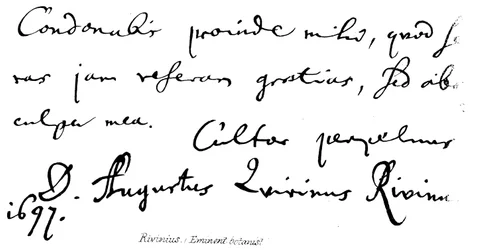 Condonabis proinde mihi, quod se
ras jam referam gratias, sed abs
culpa mea.
Cultor perpetuus
D. Augustus Quirinus Rivinu
1697.
Rivinius. (Eminent botanist